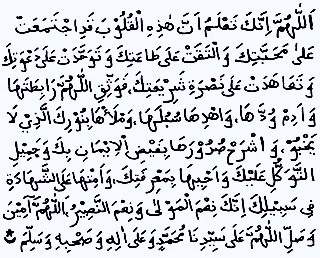 اَللّٰهُمَّ اِنَّكَ تَعْلَمُ اَنَّ هٰذِهِ الْقُلُوْبَ قَدِاجْتَمَعَتْ
عَلَى مَحَبَّتِكَ وَالْتَقَتْ عَلَى طَاعَتِكَ وَتَوَحَّدَتْ عَلَى دَعْوَتِكَ
وَتَعَاهَدَتْ عَلَى نُصْرَةِ شَرِيْعَتِكَ، فَوَثِّقِ اللّٰهُمَّ رَابِطَتَهَا
وَاَدِمْ وُدَّهَا، وَاهْدِهَا سُبُلَهَا، وَامْلَأْهَا بِنُوْرِكَ الَّذِيْ لَا
يَخْبُوْ، وَاشْرَحْ صُدُوْرَهَا بِفَيْضِ الْاِيْمَانِ بِكَ وَجَمِيْلِ
التَّوَكُّلِ عَلَيْكَ وَاَحْيِهَا بِمَعْرِفَتِكَ، وَاَمِتْهَا عَلَى الشَّهَادَةِ
فِى سَبِيْلِكَ اِنَّكَ نِعْمَ الْمَوْلَى وَنِعْمَ النَّصِيْرُ، اَللّٰهُمَّ آمِيْنَ
وَصَلِّ اللّٰهُمَّ عَلَى سَيِّدِنَا مُحَمَّدٍ وَعَلَى اٰلِهِ وَصَحْبِهِ وَسَلِّمْ